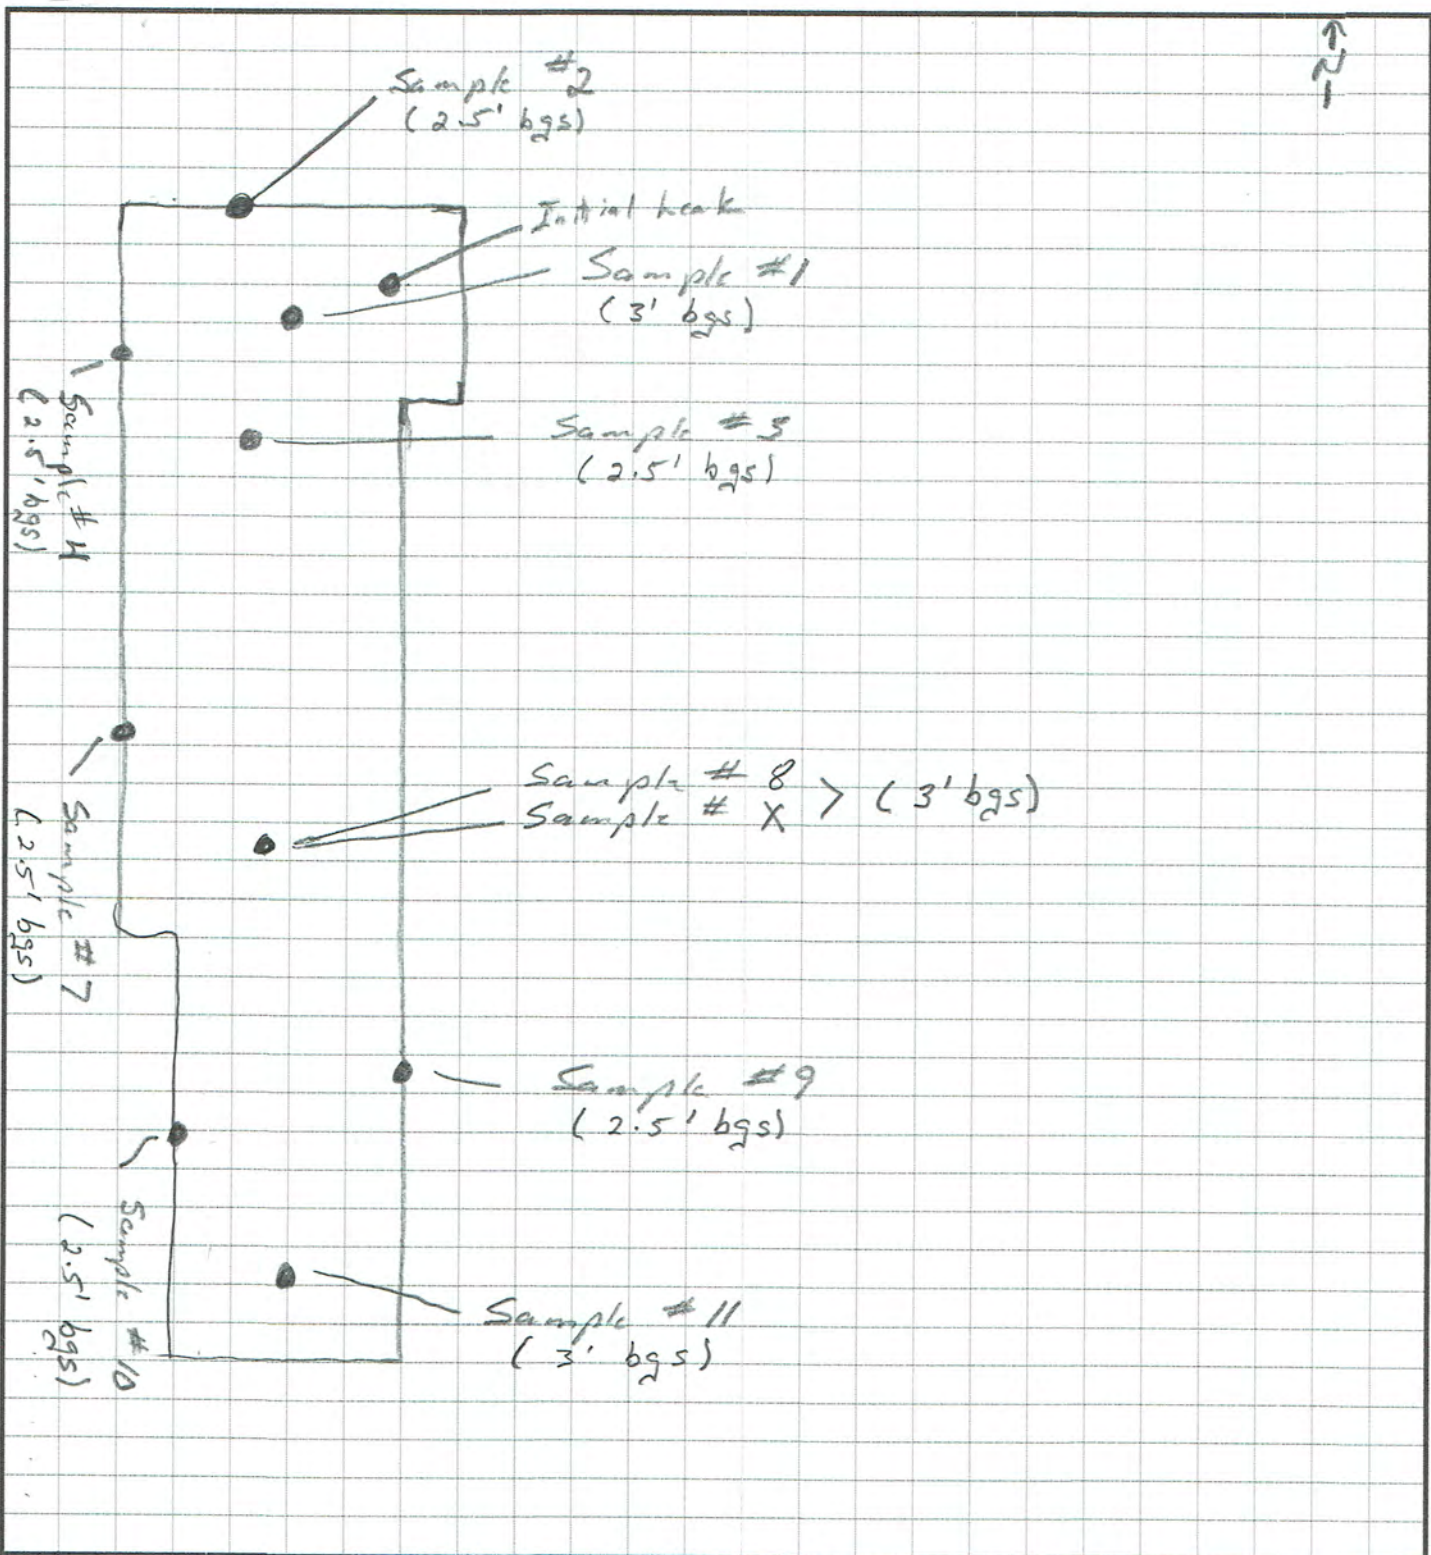 N
Sample #2
(2.5' bgs)
Initial Leak
Sample #1
(3' bgs)
Sample #3
(2.5' bgs)
Sample #4
(2.5' bgs)
Sample # 8
Sample # X > (3' bgs)
Sample #7
(2.5' bgs)
Sample #9
(2.5' bgs)
Sample #10
(2.5' bgs)
Sample #11
(3' bgs)